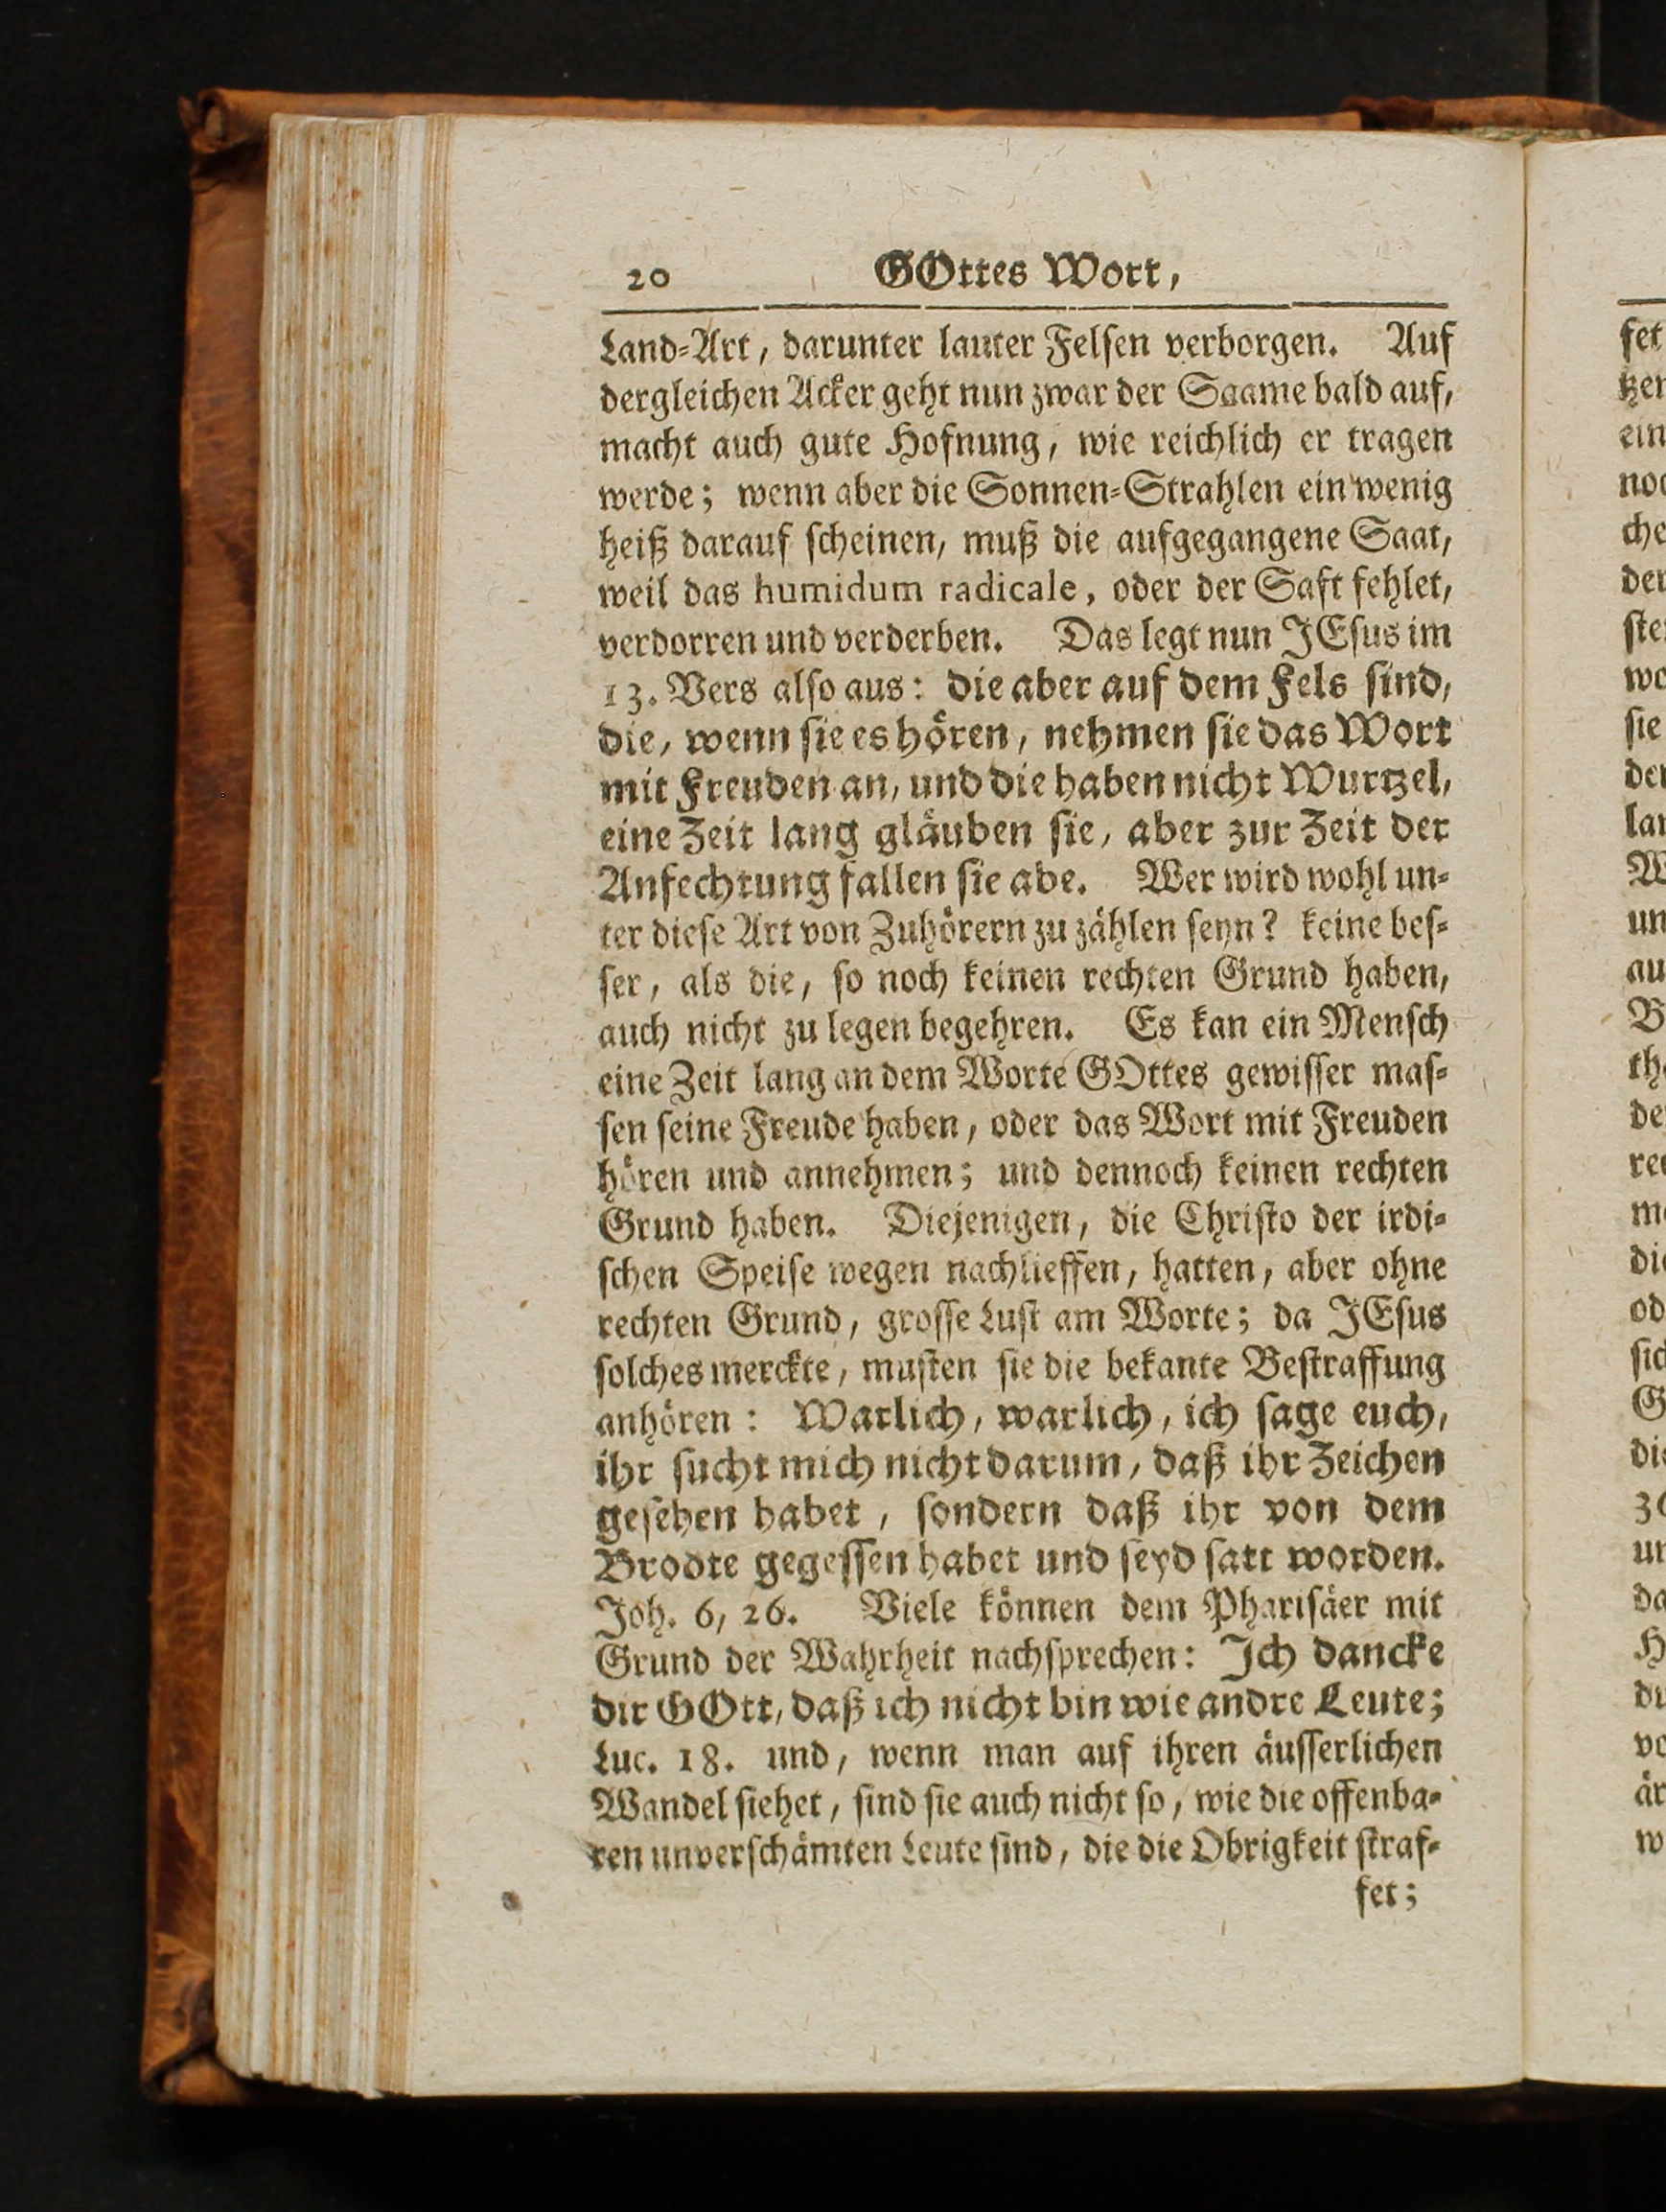 20 GOttes Wort,
Land-Art, darunter lauter Felsen verborgen. Auf
dergleichen Acker geht nun zwar der Saame bald auf,
macht auch gute Hofnung, wie reichlich er tragen
werde; wenn aber die Sonnen-Strahlen ein wenig
heiß darauf scheinen, muß die aufgegangene Saat,
weil das humidum radicale, oder der Saft fehlet,
verdorren und verderben. Das legt nun JEsus im
13. Vers also aus: die aber auf dem Fels sind,
die, wenn sie es hören, nehmen sie das Wort
mit Freuden an, und die haben nicht Wurtzel,
eine Zeit lang gläuben sie, aber zur Zeit der
Anfechtung fallen sie abe. Wer wird wohl un-
ter diese Art von Zuhörern zu zählen seyn? keine bes-
ser, als die, so noch keinen rechten Grund haben,
auch nicht zu legen begehren. Es kan ein Mensch
eine Zeit lang an dem Worte GOttes gewisser mas-
sen seine Freude haben, oder das Wort mit Freuden
hören und annehmen; und dennoch keinen rechten
Grund haben. Diejenigen, die Christo der irdi-
schen Speise wegen nachlieffen, hatten, aber ohne
rechten Grund, grosse Lust am Worte; da JEsus
solches merckte, musten sie die bekante Bestraffung
anhören: Warlich, warlich, ich sage euch,
ihr sucht mich nicht darum, daß ihr Zeichen
gesehen habet, sondern daß ihr von dem
Brodte gegessen habet und seyd satt worden.
Joh. 6, 26. Viele können dem Pharisäer mit
Grund der Wahrheit nachsprechen: Ich dancke
dir GOtt, daß ich nicht bin wie andre Leute;
Luc. 18. und, wenn man auf ihren äusserlichen
Wandel siehet, sind sie auch nicht so, wie die offenba-
ren unverschämten Leute sind, die die Obrigkeit straf-
fet;